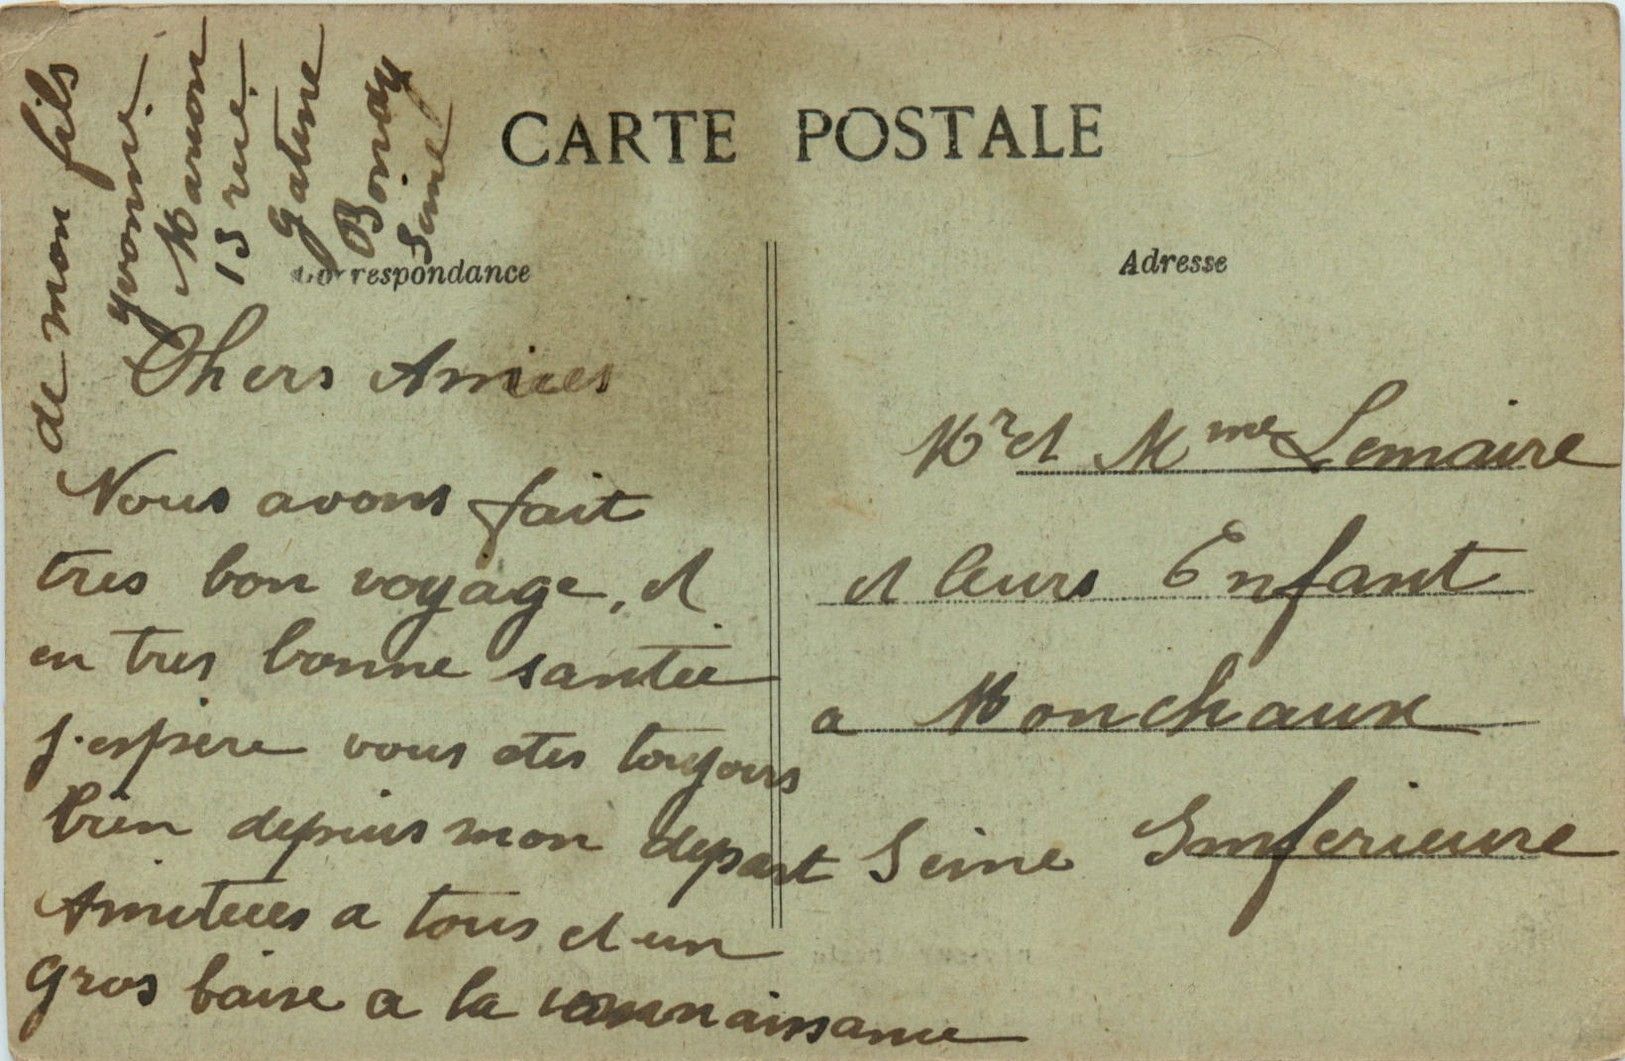 CARTE POSTALE
Correspondance
Adresse
Chers Amiees
Nous avons fait
tres bon voyage, et
en tres bonne santée
j'espere vous etes toujours
bien depuis mon depart
Amitiees a tous et un
gros baise a la connaissance
de mon fils
Yvonne
Marion
15 rue
Gatine
Bondy
Seine
Mr et Mme Lemaire
et leurs Enfant
a Monchaux
Seine Inferieure